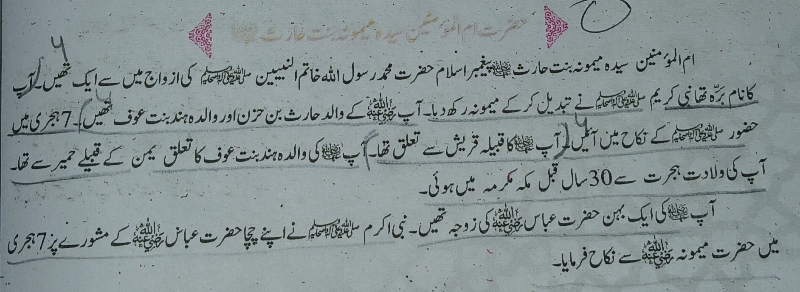 حضرت ام المؤمنین سیدہ میمونہ بنت حارث ﷺ
ام المؤمنین سیدہ میمونہ بنت حارث ﷺ پیغمبر اسلام حضرت محمد رسول اللہ خاتم النبیین ﷺ کی ازواج میں سے ایک تھیں۔ آپ
کا نام برّہ تھا نبی کریم ﷺ نے تبدیل کر کے میمونہ رکھ دیا۔ آپ رضی اللہ عنہا کے والد حارث بن حزن اور والدہ ہند بنت عوف تھیں۔ 7 ہجری میں
حضور ﷺ کے نکاح میں آئیں۔ آپ کا قبیلہ قریش سے تعلق تھا۔ آپ کی والدہ ہند بنت عوف کا تعلق یمن کے قبیلے حمیر سے تھا۔
آپ کی ولادت ہجرت سے 30 سال قبل مکہ مکرمہ میں ہوئی۔
آپ کی ایک بہن حضرت عباس رضی اللہ عنہ کی زوجہ تھیں۔ نبی اکرم ﷺ نے اپنے چچا حضرت عباس رضی اللہ عنہ کے مشورے پر 7 ہجری
میں حضرت میمونہ رضی اللہ عنہا سے نکاح فرمایا۔